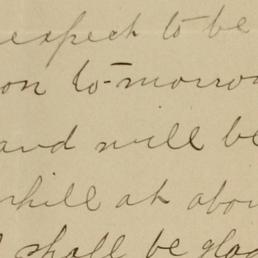 expect to be
on to-morrow
and will be
hill at about
shall be glad